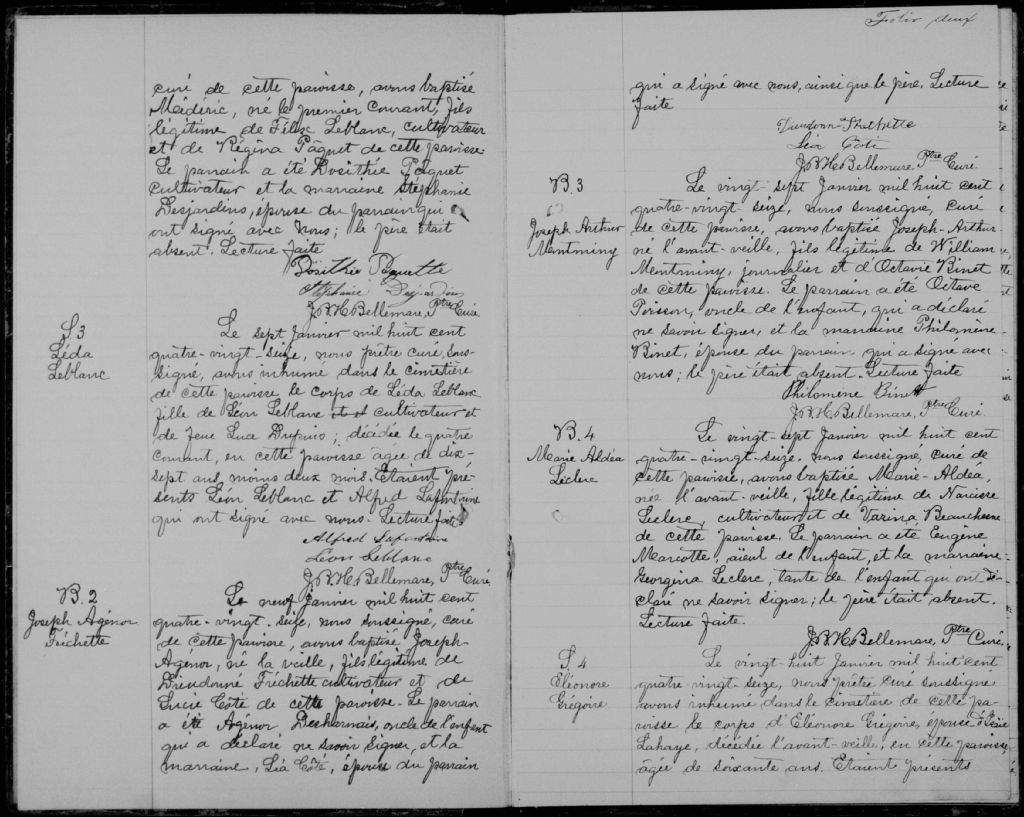 curé de cette paroisse, avons baptisé
Médéric, né le premier courant, fils
légitime de Félix Leblanc, cultivateur
et de Régina Pâquet de cette paroisse.
Le parrain a été Dosithée Pâquet
cultivateur et la marraine Stéphanie
Desjardins, épouse du parrain qui
ont signé avec nous; le père était
absent. Lecture faite
Dosithé Paquette
Stéphanie Desjardins
J.B.H. Bellemare, Ptre Curé.
S 3
Léda
Leblanc
Le sept Janvier mil huit cent
quatre-vingt-seize, nous prêtre curé, sous-
signé, avons inhumé dans le cimetière
de cette paroisse le corps de Léda Leblanc
fille de Léon Leblanc et et cultivateur et
de feue Luce Dupuis; décédée le quatre
courant, en cette paroisse âgée de dix-
sept ans moins deux mois. Etaient pré-
sents Léon Leblanc et Alfred Lafontaine
qui ont signé avec nous. Lecture faite
Alfred Lafontaine
Léon Leblanc
J.B.H. Bellemare, Ptre Curé
B. 2
Joseph Agénor
Fréchette
Le neuf Janvier mil huit cent
quatre-vingt-seize, nous soussigné, curé
de cette paroisse, avons baptisé Joseph-
Agénor, né la veille, fils légitime de
Dieudonné Fréchette cultivateur et de
Lucie Côté de cette paroisse. Le parrain
a été Agénor Desharnais, oncle de l'enfant
qui a déclaré ne savoir signer, et la
marraine, Léa Côté, épouse du parrain
Folio deux
qui a signé avec nous, ainsi que le père. Lecture
faite
Léa Coté
J.B.H. Bellemare, Ptre Curé.
B. 3
Joseph Arthur
Montminy
Le vingt-sept Janvier mil huit cent
quatre-vingt-seize, nous soussigné, curé
de cette paroisse, avons baptisé Joseph-Arthur
né l'avant-veille, fils légitime de William
Montminy, journalier et d'Octavie Binet
de cette paroisse. Le parrain a été Octave
Poisson, oncle de l'enfant, qui a déclaré
ne savoir signer, et la marraine Philomène
Binet, épouse du parrain qui a signé avec
nous; le père était absent. Lecture faite
Philomene Binet
J.B.H. Bellemare, Ptre Curé
B. 4
Marie Aldéa
Leclerc
Le vingt-sept Janvier mil huit cent
quatre-vingt-seize. nous soussigné, curé de
cette paroisse, avons baptisé Marie-Aldéa,
née l'avant-veille, fille légitime de Narcisse
Leclerc, cultivateur et de Varina Beauchesne
de cette paroisse. Le parrain a été Eugène
Marcotte, aïeul de l'enfant, et la marraine
Georgina Leclerc, tante de l'enfant qui ont dé-
claré ne savoir signer; le père était absent.
Lecture faite.
J.B.H. Bellemare, Ptre Curé.
S. 4
Eléonore
Grégoire
Le vingt-huit Janvier mil huit cent
quatre-vingt-seize, nous prêtre curé soussigné
avons inhumé dans le cimetière de cette pa-
roisse le corps d'Eléonore Grégoire, épouse
Lahaye, décédée l'avant-veille, en cette paroisse,
âgée de soixante ans. Etaient présents